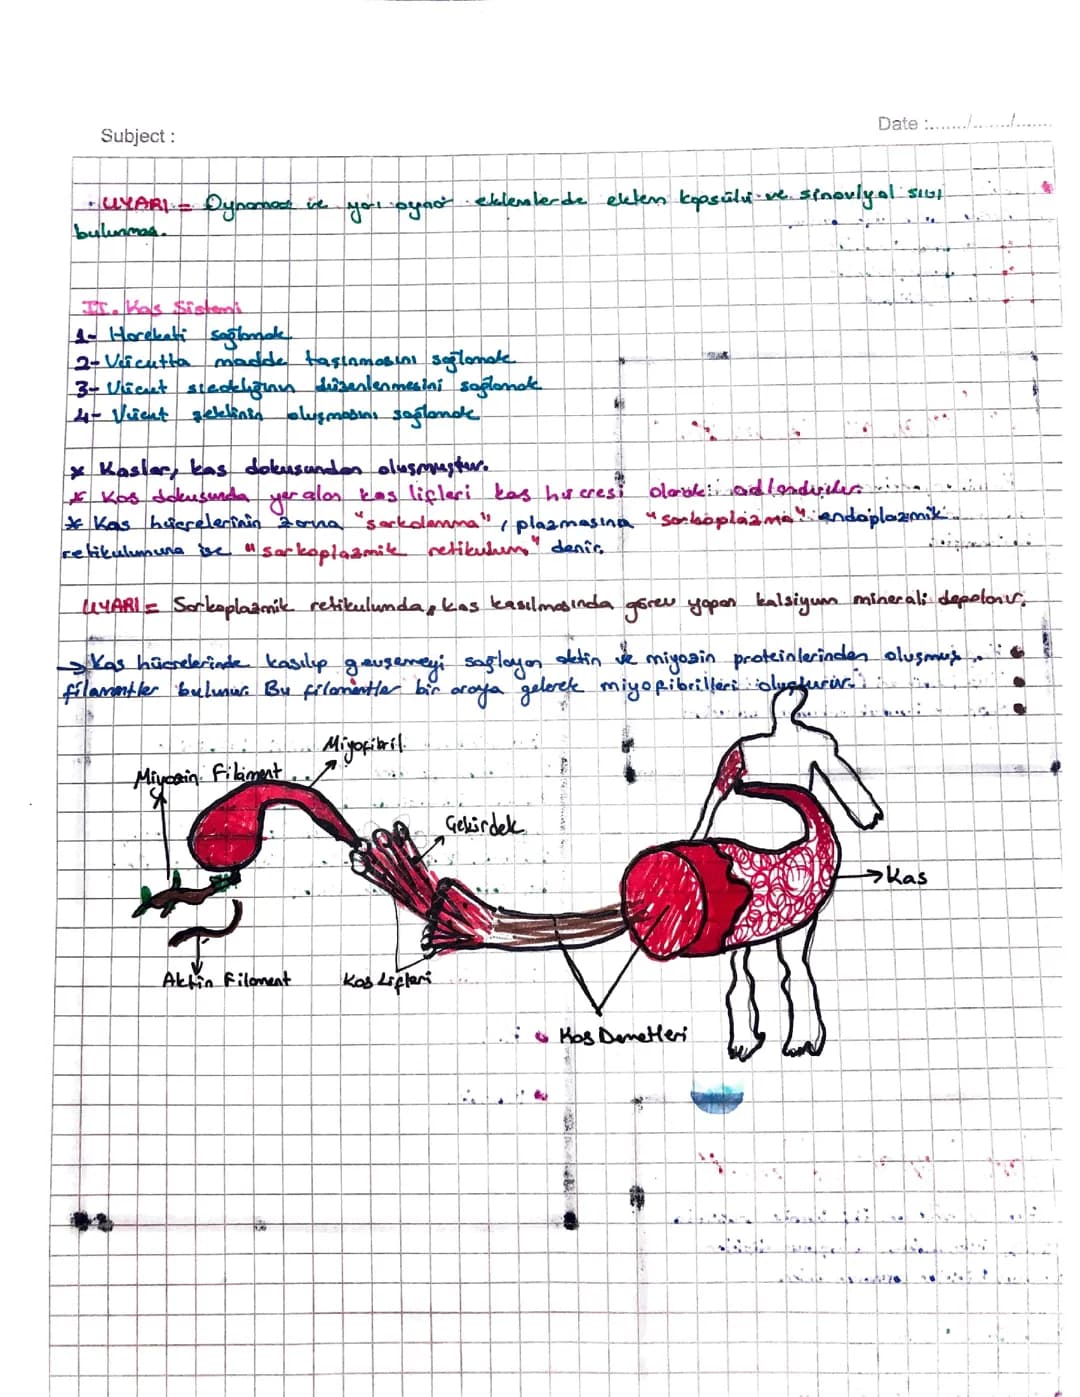 Subject :
Date :......./......./.......
UYARI = Oynamaz ve yarı oynar eklemlerde eklem kapsülü ve sinoviyal sıvı
bulunmaz.
II. Kas Sistemi
1- Hareketi sağlamak
2- Vücutta madde taşınmasını sağlamak
3- Vücut sıcaklığının düzenlenmesini sağlamak
4- Vücut şeklinin oluşmasını sağlamak
* Kaslar, kas dokusundan oluşmuştur.
* Kas dokusunda yer alan kas lifleri kas hücresi olarak adlandırılır.
* Kas hücrelerinin zarına "sarkolemma", plazmasına "sarkoplazma" endoplazmik
retikulumuna ise "sarkoplazmik retikulum" denir.
UYARI = Sarkoplazmik retikulunda, kas kasılmasında görev yapan kalsiyum minerali depolanır.
→ Kas hücrelerinde kasılıp gevşemeyi sağlayan aktin ve miyozin proteinlerinden oluşmuş
filamentler bulunur. Bu filamentler bir araya gelerek miyofibrilleri oluşturur.
Miyofibril
Miyozin Filament
Çekirdek
Kas
Aktin Filament
Kas Lifleri
Kas Demetleri